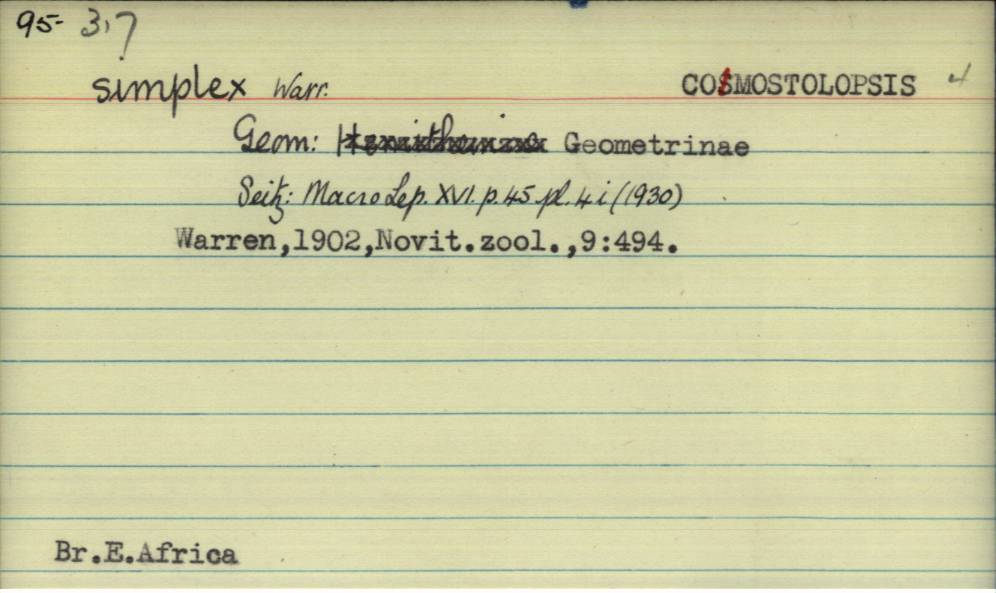 95- 3,7
simplex Warr. COSMOSTOLOPSIS 4
Geom: Geometrinae
Seitz: Macro Lep. XVI. p. 45. pl. 4 i (1930)
Warren,1902,Novit.zool.,9:494.
Br.E.Africa